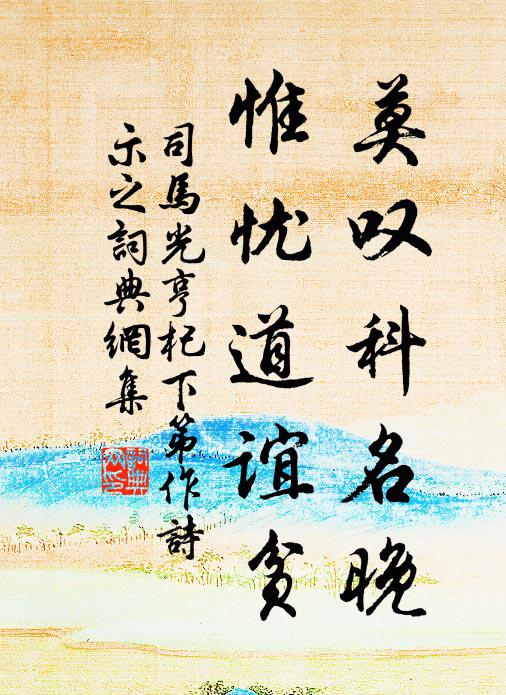 莫叹科名晚
惟忧道谊贫
司馬光亨杞下第作詩
示之詞典網集